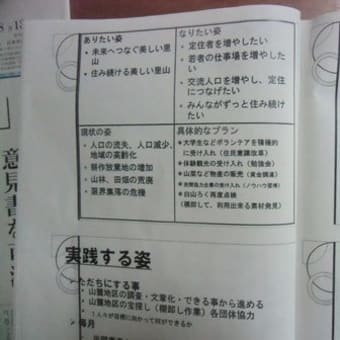 ありたい姿
• 未来へつなぐ美しい里
山
• 住み続ける美しい里山
なりたい姿
• 定住者を増やしたい
• 若者の仕事場を増やした
い
• 交流人口を増やし、定住
につなげたい
• みんながずっと住み続け
たい
現状の姿
• 人口の流失、人口減少、
地域の高齢化
• 耕作放棄地の増加
• 山林、田畑の荒廃
• 限界集落の危機
具体的なプラン
• 大学生などボランテアを積極的
に受け入れ（住民意識改革）
• 体験観光の受け入れ（勉強会）
• 山菜など物産の販売（資金調達）
の受け入れ（ノウハウ習得）
• 白山ろく再度点検
（棚卸して、利用出来る素材発見）
実践する姿
ただちにする事
• 山麓地区の調査・文章化・できる事から進める
• 山麓地区の宝探し（棚卸し作業）各団体協力
• 1人々が目標に向かって何ができるか
毎月
意見書